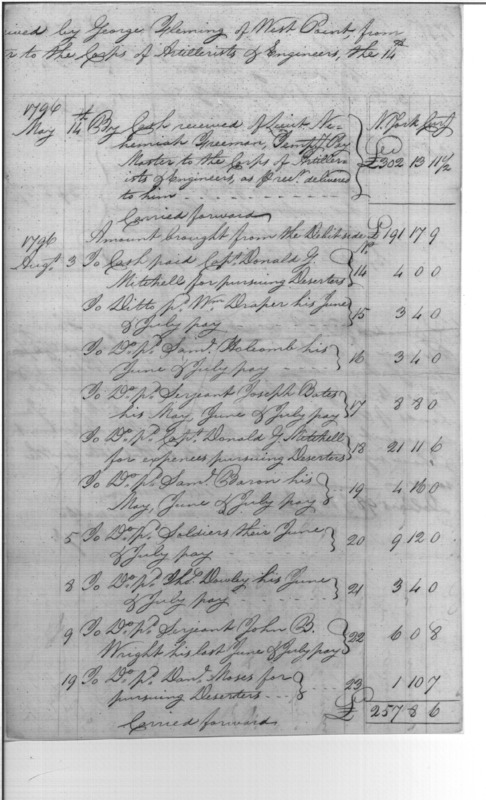 ived by George Fleming of West Point from
r to the Corps of Artillerists & Engineers, the 14th
1796 N. York Curry
May 14th By Cash received of Lieut Ne-
hemiah Freeman, Tempy Pay
Master to the Corps of Artiller-
ists & Engineers, as Rect. delivered
to him £302 13 11 1/2
Carried forward
1796 Amount brought from the Debit side £191 17 9
No
Augt. 3 To Cash paid Capt. Donald G.
Mitchell for pursuing Deserters 14 4 0 0
To Ditto pd. Wm. Draper his June
& July pay 15 3 4 0
To Do. pd. Saml. Holcomb his
June & July pay 16 3 4 0
To Do. pd. Serjeant Joseph Bates
his May, June & July pay 17 8 8 0
To Do. pd. Capt. Donald G. Mitchell
for expences pursuing Deserters 18 21 11 6
To Do. pd. Saml. Baron his
May, June & July pay 19 4 16 0
5 To Do. pd. Soldiers their June
& July pay 20 9 12 0
8 To Do. pd. Thos. Dowley his June
& July pay 21 3 4 0
9 To Do. pd. Serjeant John B.
Wright his last June & July pay 22 6 0 8
19 To Do. pd. Danl. Moses for
pursuing Deserters 23 1 10 7
Carried forward £ 257 8 6